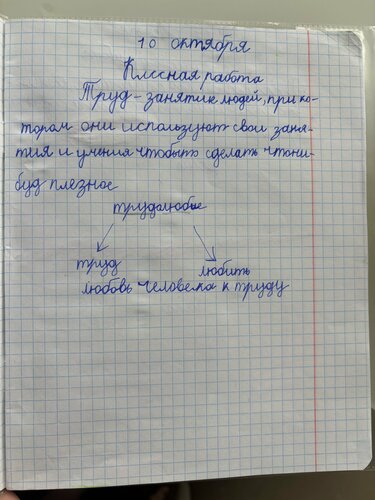 10 октября
Клссная работа
Труд - занятие людей, при ко-
тором они используют свои заня-
тия и учения чтобыть сделать чтони-
буд плезное
трудолюбые
труд любить
любовь человека к труду